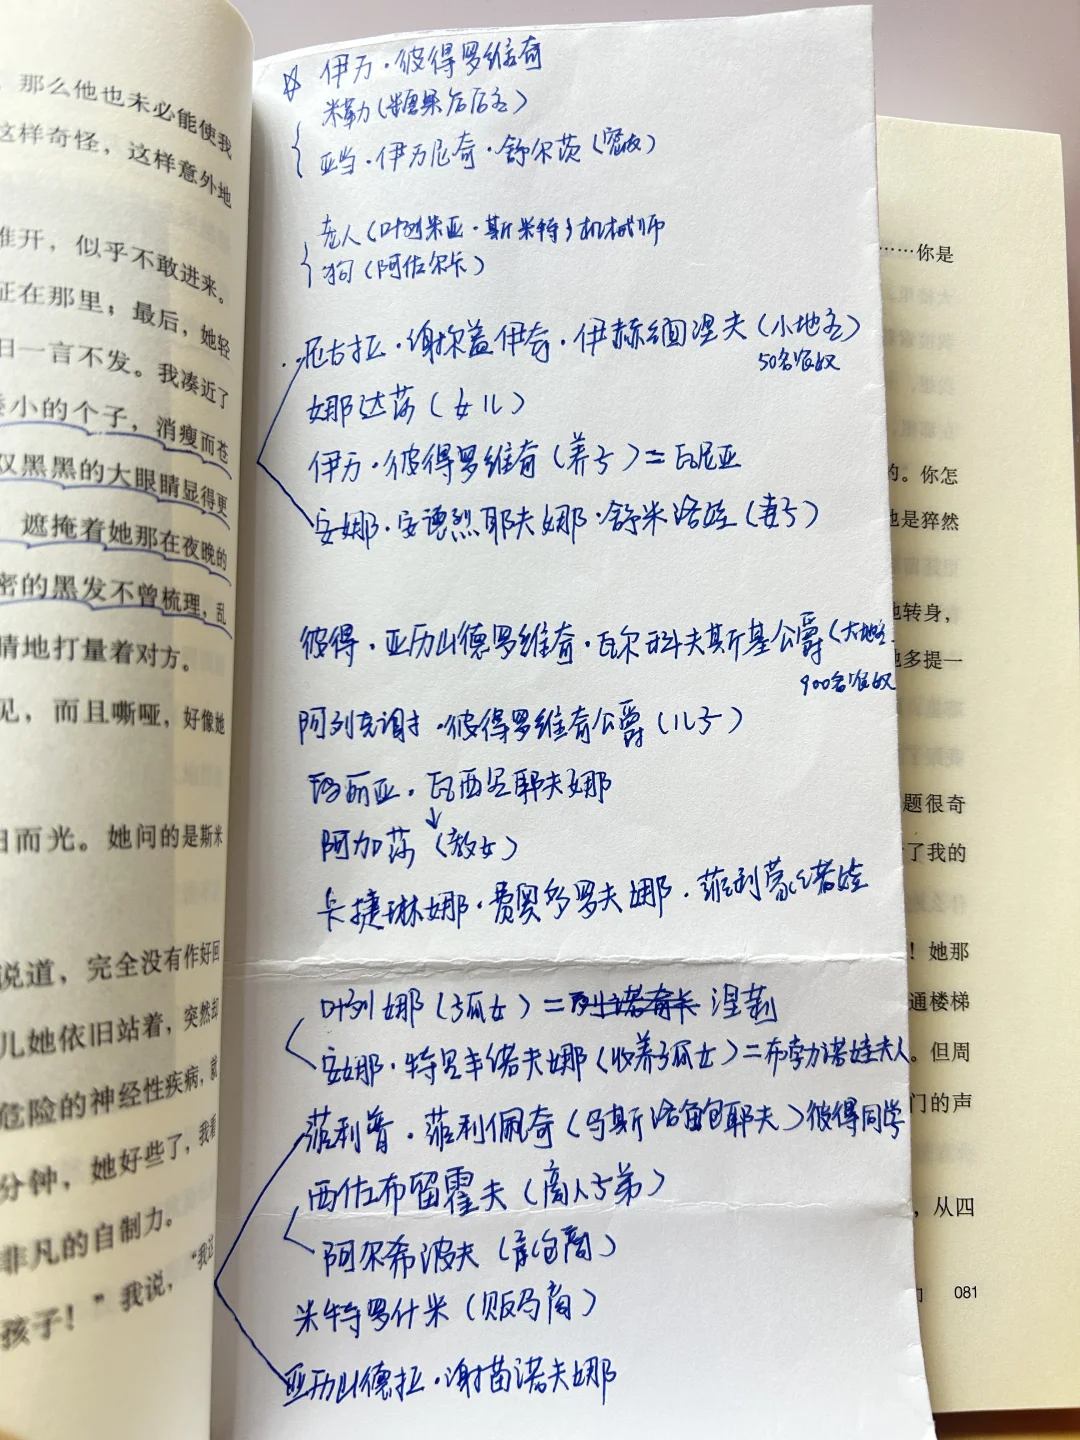 ，那么他也未必能使我
这样奇怪，这样意外地
推开，似乎不敢进来。
征在那里；最后，她轻
旧一言不发。我凑近了
矮小的个子，消瘦而苍
双黑黑的大眼睛显得更
遮掩着她那在夜晚的
密的黑发不曾梳理，乱
睛地打量着对方。
见，而且嘶哑，好像她
白而光。她问的是斯米
说道，完全没有作好回
儿她依旧站着，突然却
危险的神经性疾病，就
分钟，她好些了，我看
非凡的自制力。
孩子！”我说，“我这
☆ 伊万·彼得罗维奇
米勒（糖果店店主）
亚当·伊万尼奇·舒尔茨（客人）
老人（叶列米亚·斯米特）机械师
狗（阿佐尔卡）
尼古拉·谢尔盖伊奇·伊赫缅涅夫（小地主）
50名农奴
娜达莎（女儿）
伊万·彼得罗维奇（养子）＝瓦尼亚
安娜·安德烈耶夫娜·舒米洛娃（妻子）
彼得·亚历山德罗维奇·瓦尔科夫斯基公爵（大地主
900名农奴
阿列克谢·彼得罗维奇公爵（儿子）
玛丽亚·瓦西里耶夫娜
↓
阿加莎（教女）
卡捷琳娜·费奥多罗夫娜·菲利蒙诺娃
叶列娜（孤女）＝ 涅莉
安娜·特里丰诺夫娜（收养孤女）＝布勃诺娃夫人
菲利普·菲利佩奇（马斯洛鲍耶夫）彼得同学
西佐布留霍夫（商人子弟）
阿尔希波夫（承包商）
米特罗什米（贩马商）
亚历山德拉·谢苗诺夫娜
……你是
的。你怎
也是猝然
她转身，
她多提一
题很奇
了我的
！她那
通楼梯
。但周
门的声
，从四
081